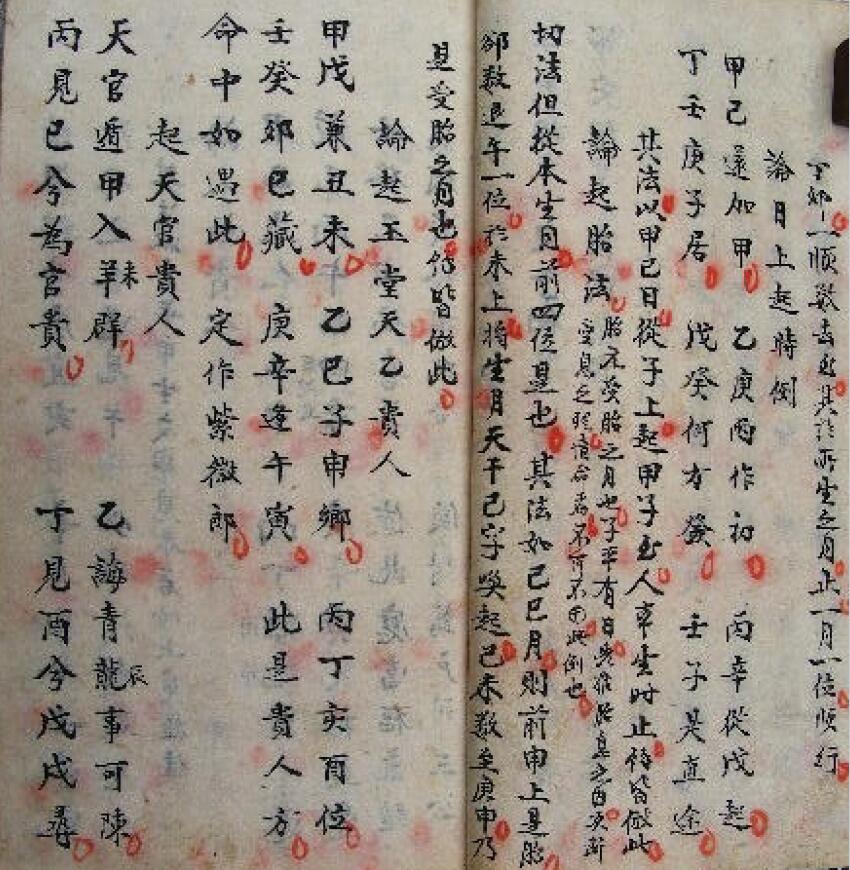 丁卯一順数去至其於所生之月止一月一位順行
論日上起時例
甲己還加甲 乙庚丙作初 丙辛從戊起
丁壬庚子居 戊癸何方發 壬子是直途
其法以甲己日從子上起甲子至人本生时止餘皆倣此
論起胎法 胎元受胎之月也子平有日先推胎息之由次斷
受息之
不可不因此例也
切法但從本生月前四位是也 其法如己巳月則前申上是胎
卻数退午一位於未上将生月天干己字喚起己未数至庚申乃
是受胎之月也餘皆倣此
論起玉堂天乙貴人
甲戊兼丑未 乙己子申鄉 丙丁亥酉位
壬癸卯巳藏 庚辛逢午寅 此是貴人方
命中如遇此 定作紫微郎
起天官貴人
天官遁甲入羊群未 乙誨青龍事可陳辰
丙見巳兮為官貴 丁見酉兮戊戌尋